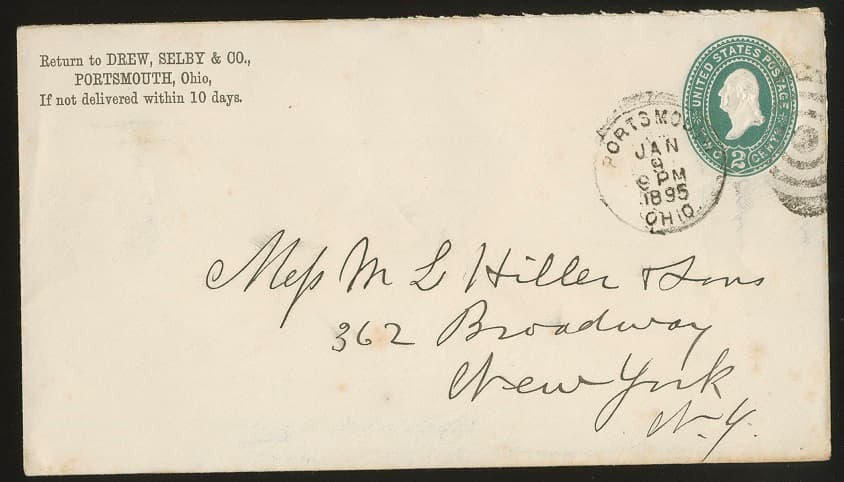 Return to DREW, SELBY & CO.,
PORTSMOUTH, Ohio,
If not delivered within 10 days.
UNITED STATES POSTAGE
2 CENTS
PORTSMOUTH
JAN
9
9 PM
1895
OHIO
Mess M L Hiller & Sons
362 Broadway
New York
N.Y.